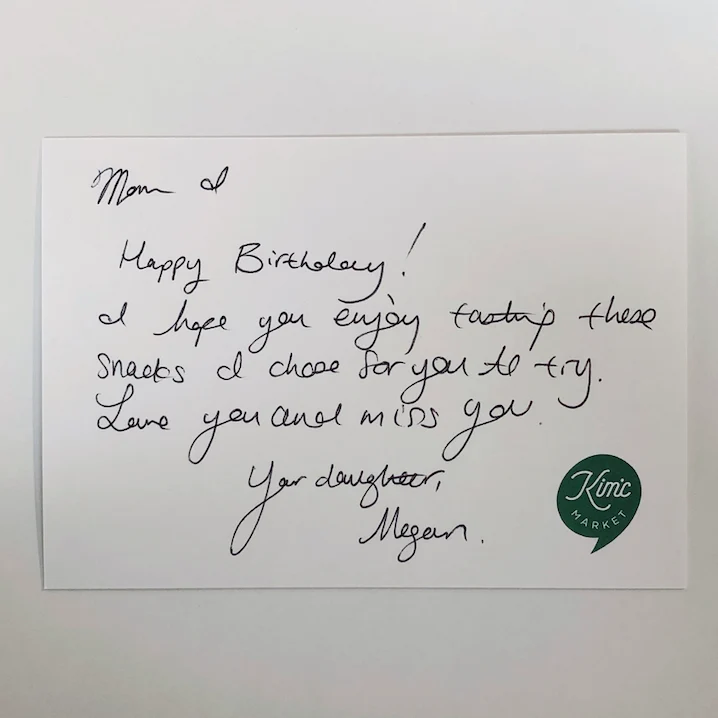 Mom I
Happy Birthday!
I hope you enjoy tasting these
snacks I chose for you to try.
Love you and miss you.
Your daughter,
Megan.
Kim'C
MARKET